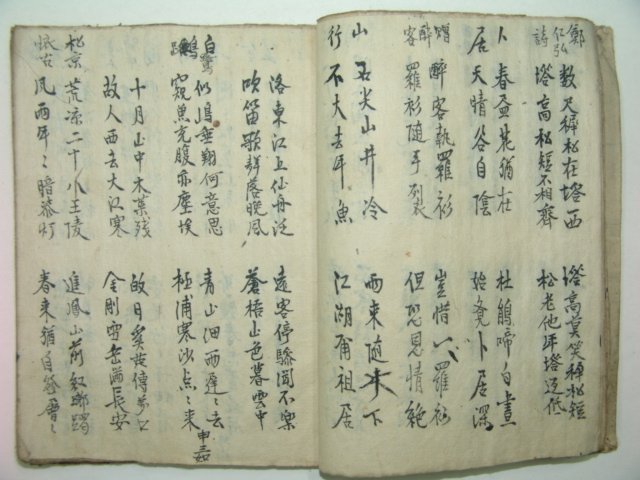 鄭仁弘詩
数尺穉松在塔西
塔高松短不相齊
塔高莫笑穉松短
松老他年塔还低
卜居
春盃花猶在
天晴谷自陰
杜鵑啼白晝
始覺卜居深
贈醉客
醉客執羅衫
羅衫随手裂
豈惜一羅衫
但恐恩情絶
山行
石尖山井冷
不大去年魚
雨東随下
江湖甫祖居
洛東江上仙舟泛
吹笛歌聲落晩風
遠客停驂聞不樂
蒼梧山色暮雲中
白鷺
似嶋垂翔何意思
窺魚充腹亦塵埃
青山細雨遲々去
極浦寒沙点々来
十月山中木葉残
故人西去大江寒
金剛雪岳長安
松京懐古
荒凉二十八王陵
風雨年々暗漆灯
進鳳山前紅躑躅
春来猶自發層々